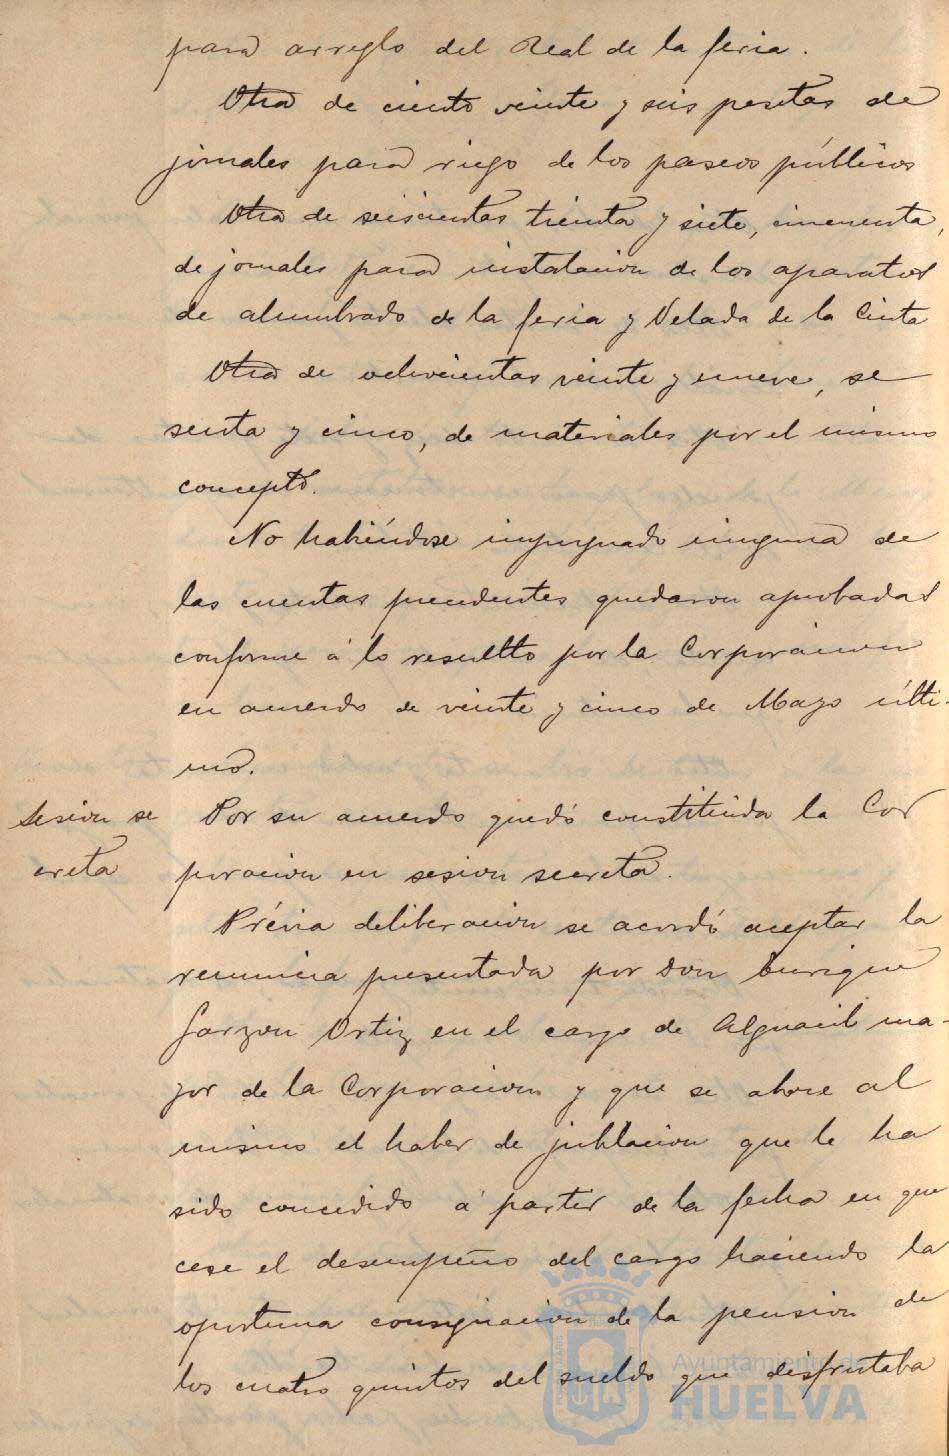 para arreglo del Real de la feria.
Otra de ciento veinte y seis pesetas de
jornales para riego de los paseos públicos
Otra de seiscientas treinta y siete, cincuenta,
de jornales para instalacion de los aparatos
de alumbrado de la feria y Velada de la Cinta
Otra de ochocientas veinte y nueve, se
senta y cinco, de materiales por el mismo
concepto.
No habiéndose impugnado ninguna de
las cuentas precedentes quedaron aprobadas
conforme á lo resuelto por la Corporacion
en acuerdo de veinte y cinco de Mayo últi-
mo.
Sesion se
creta
Por su acuerdo quedó constituida la Cor
poracion en sesion secreta.
Prévia deliberacion se acordó aceptar la
renuncia presentada por don Enrique
Garzon Ortiz en el cargo de Alguacil ma-
yor de la Corporacion y que se abone al
mismo el haber de jubilacion que le ha
sido concedido á partir de la fecha en que
cese el desempeño del cargo haciendo la
oportuna consignacion de la pension de
los cuatro quintos del sueldo que disfrutaba
Ayuntamiento de
HUELVA